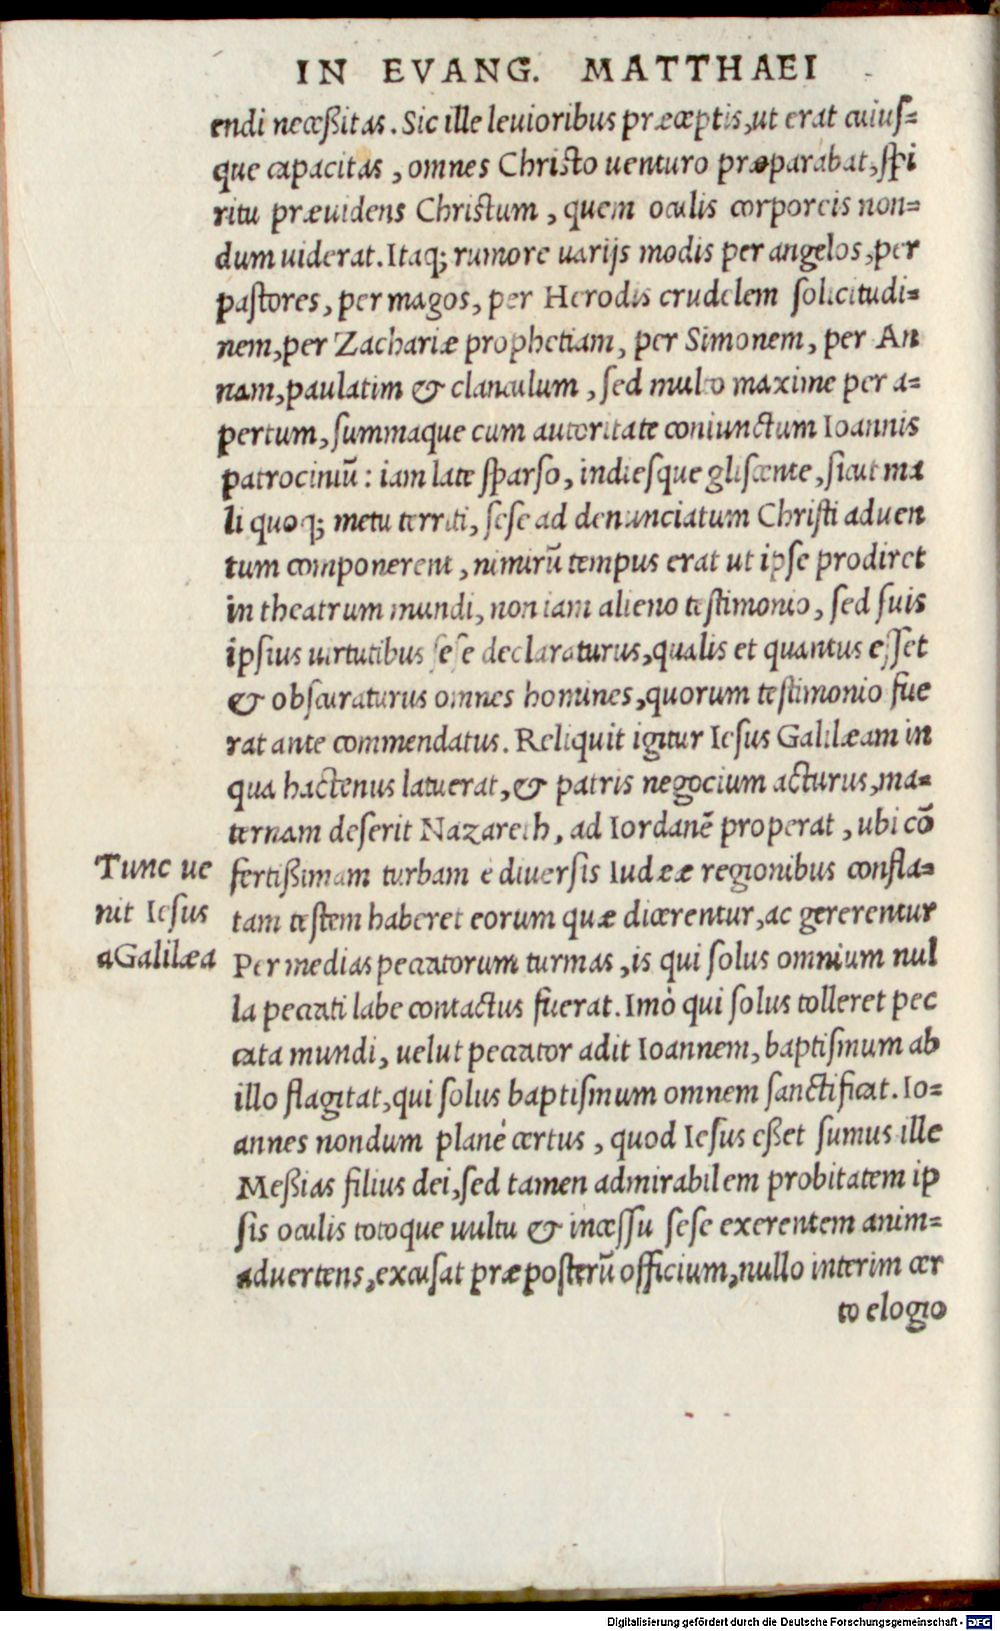 IN EVANG. MATTHAEI
endi neceßitas. Sic ille leuioribus præceptis, ut erat cuiuſ=
que capacitas, omnes Christo uenturo præparabat, ſpi
ritu præuidens Christum, quem oculis corporeis non=
dum uiderat. Itaq; rumore uarijs modis per angelos, per
paſtores, per magos, per Herodis crudelem ſolicitudi=
nem, per Zachariæ prophetiam, per Simonem, per An
nam, paulatim & clanculum, ſed multo maxime per a=
pertum, ſummaque cum autoritate coniunctum Ioannis
patrociniū: iam late ſparſo, indieſque gliſcente, ſicut ma
li quoq; metu territi, ſeſe ad denunciatum Chriſti aduen
tum componerent, nimirū tempus erat ut ipſe prodiret
in theatrum mundi, non iam alieno teſtimonio, ſed ſuis
ipſius uirtutibus ſeſe declaraturus, qualis et quantus eſſet
& obſcuraturus omnes homines, quorum teſtimonio fue
rat ante commendatus. Reliquit igitur Ieſus Galilæam in
qua hactenus latuerat, & patris negocium acturus, ma=
ternam deſerit Nazareth, ad Iordanē properat, ubi cō
fertißimam turbam e diuerſis Iudææ regionibus confla=
tam teſtem haberet eorum quæ dicerentur, ac gererentur
Per medias peccatorum turmas, is qui ſolus omnium nul
la peccati labe contactus fuerat. Imò qui ſolus tolleret pec
cata mundi, uelut peccator adit Ioannem, baptiſmum ab
illo flagitat, qui ſolus baptiſmum omnem ſanctificat. Io=
annes nondum planè certus, quod Ieſus eßet ſumus ille
Meßias filius dei, ſed tamen admirabilem probitatem ip
ſis oculis totoque uultu & inceſſu ſeſe exerentem anim=
aduertens, excuſat præpoſterū officium, nullo interim cer
to elogio
Tunc ue
nit Ieſus
a Galilæa
Digitalisierung gefördert durch die Deutsche Forschungsgemeinschaft - DFG